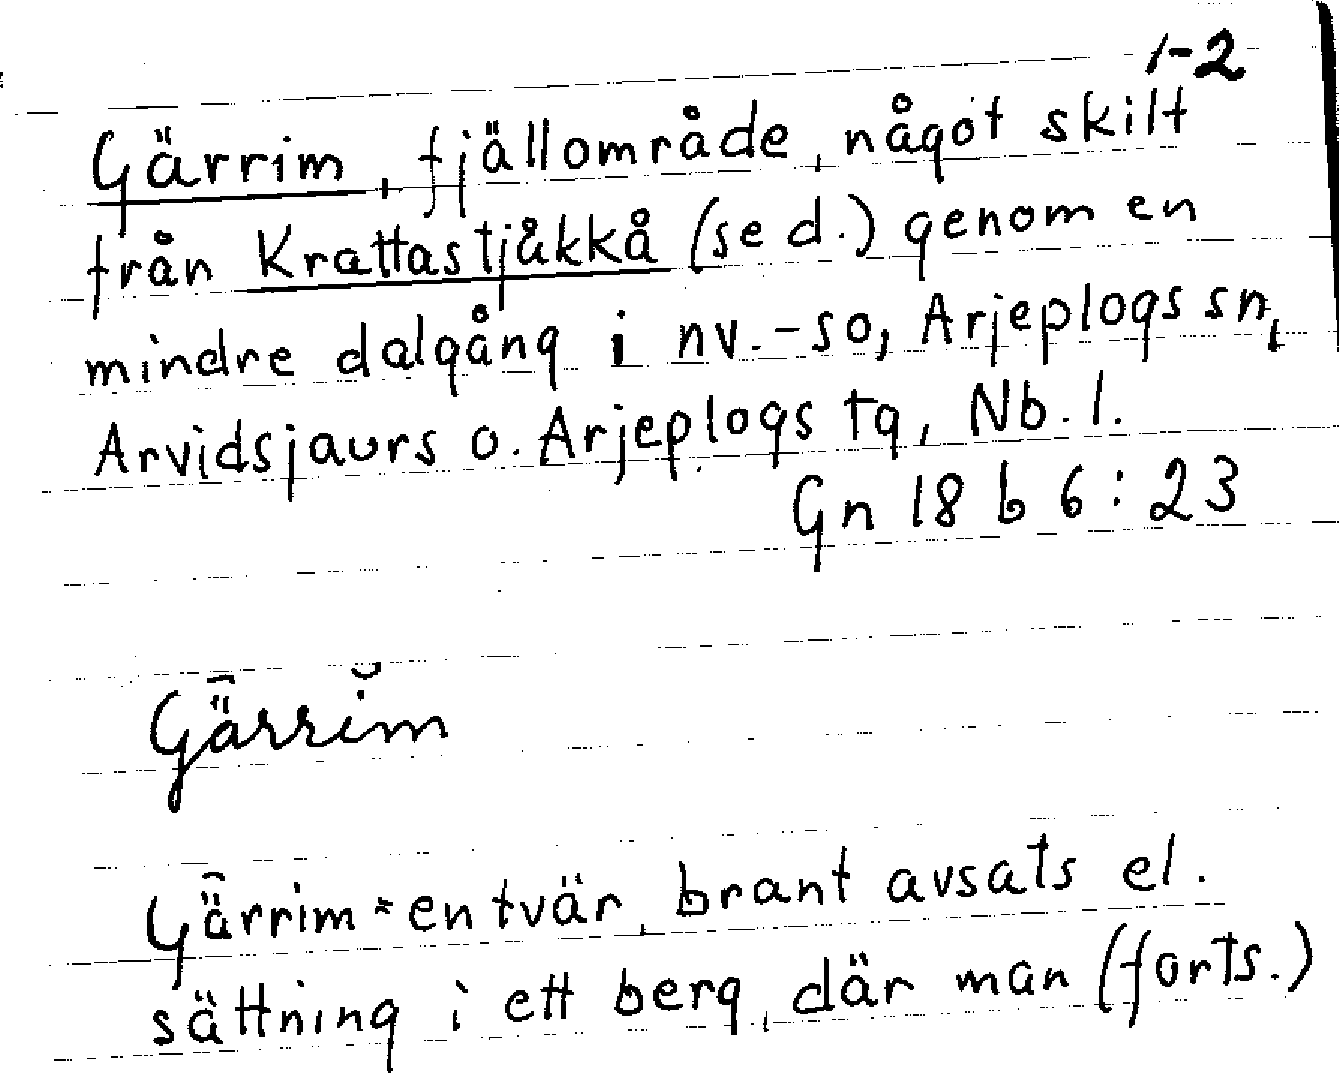 1-2
Gärrim, fjällområde, något skilt
från Krattastjåkkå (se d.) genom en
mindre dalgång i nv.-so, Arjeplogs sn,
Arvidsjaurs o. Arjeplogs tg, Nb. l.
Gn 18 b 6:23
Gä̑rrĭm
Gä̑rrim = en tvär, brant avsats el.
sättning i ett berg, där man (forts.)